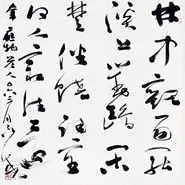 林中觀易罷
溪上對鷗閒
楚俗饒詞客
何人最往還
韋應物